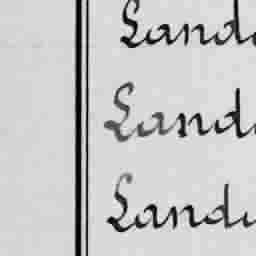 Land
Land
Land